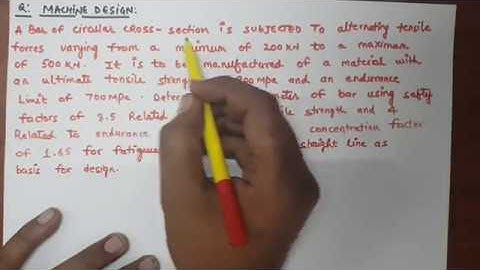 Q: MACHINE DESIGN:
A Bar of circular CROSS-section is SUBJECTED To alternating tensile
forces varying from a minimum of 200 KN to a maximum
of 500 KN. It is to be manufactured of a material with
an ultimate tensile strength 900 MPa and an endurance
Limit of 700 MPa. Deter meter of bar using safety
factors of 3.5 Related le strength and 4
Related to endurance concentration factor
of 1.65 for fatigue straight line as
basis for design.